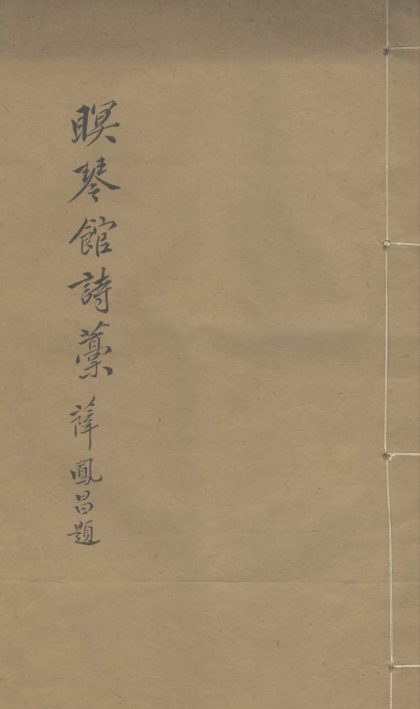 瞑琴館詩藁薛鳳昌題